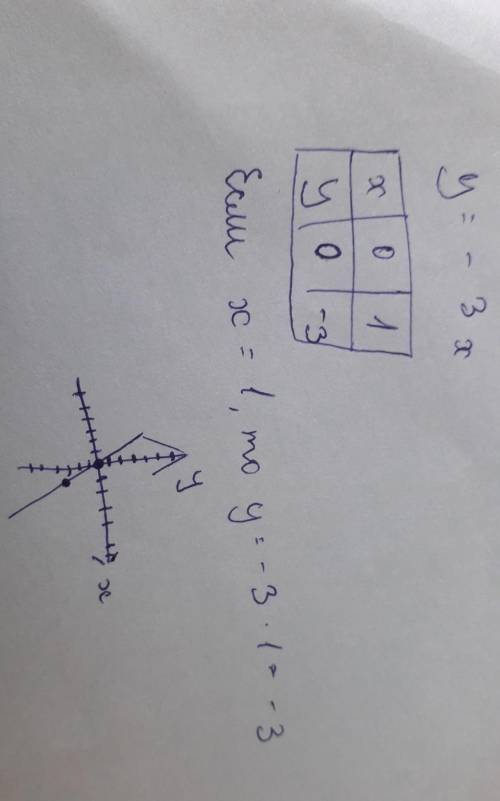 y = - 3 x
x 0 1
y 0 -3
Если x = 1, то y = -3 · 1 = -3
y
x